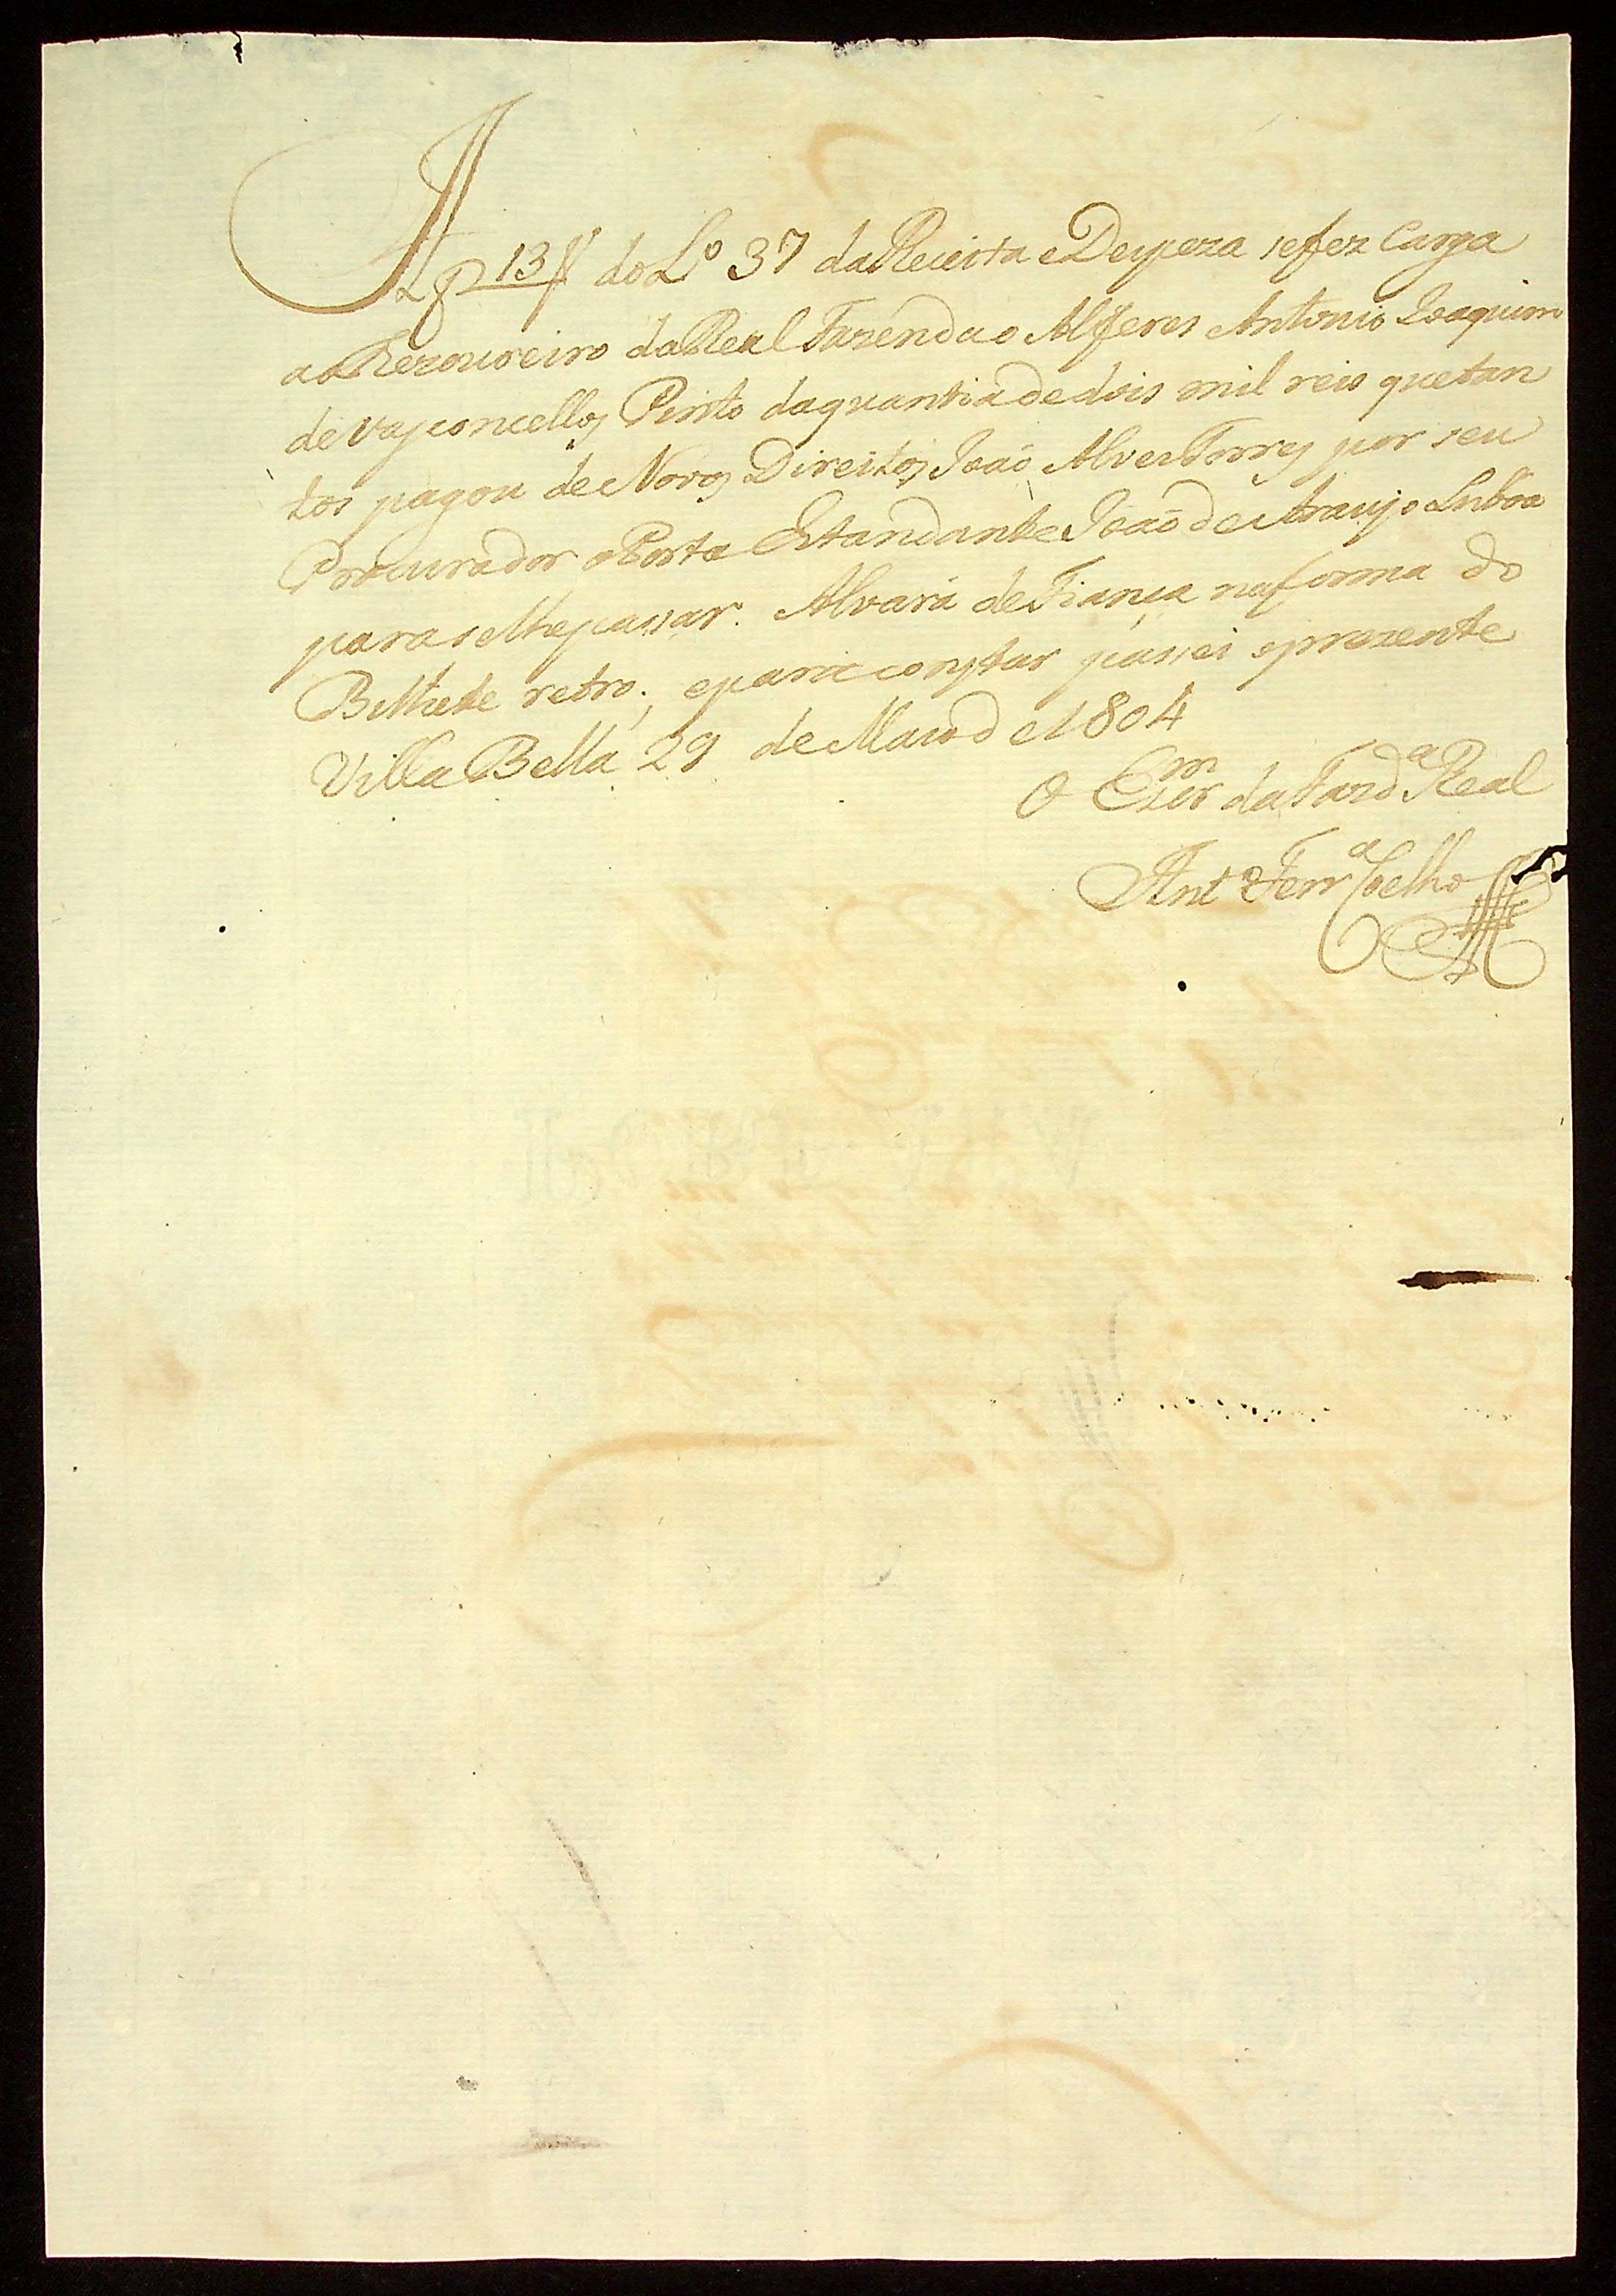 Af 13 v do Lº 37 da Receita e Despeza se fez Carga
ao Thezoureiro da Real Fazenda o Alfferes Antonio Joaquim
de Vasconcellos Pinto da quantia de dois mil reis que tan
tos pagou de Novos Direitos João Alves Torres por seu
Procurador o Porta Estandante João de Araujo Lisboa
para se lhe passar Alvará de Fiança na forma do
Bilhete retro; e para constar passei o prezente
Villa Bella 29 de Maio de 1804
O Esm da Fazdª Real
Antº Ferrª Coelho